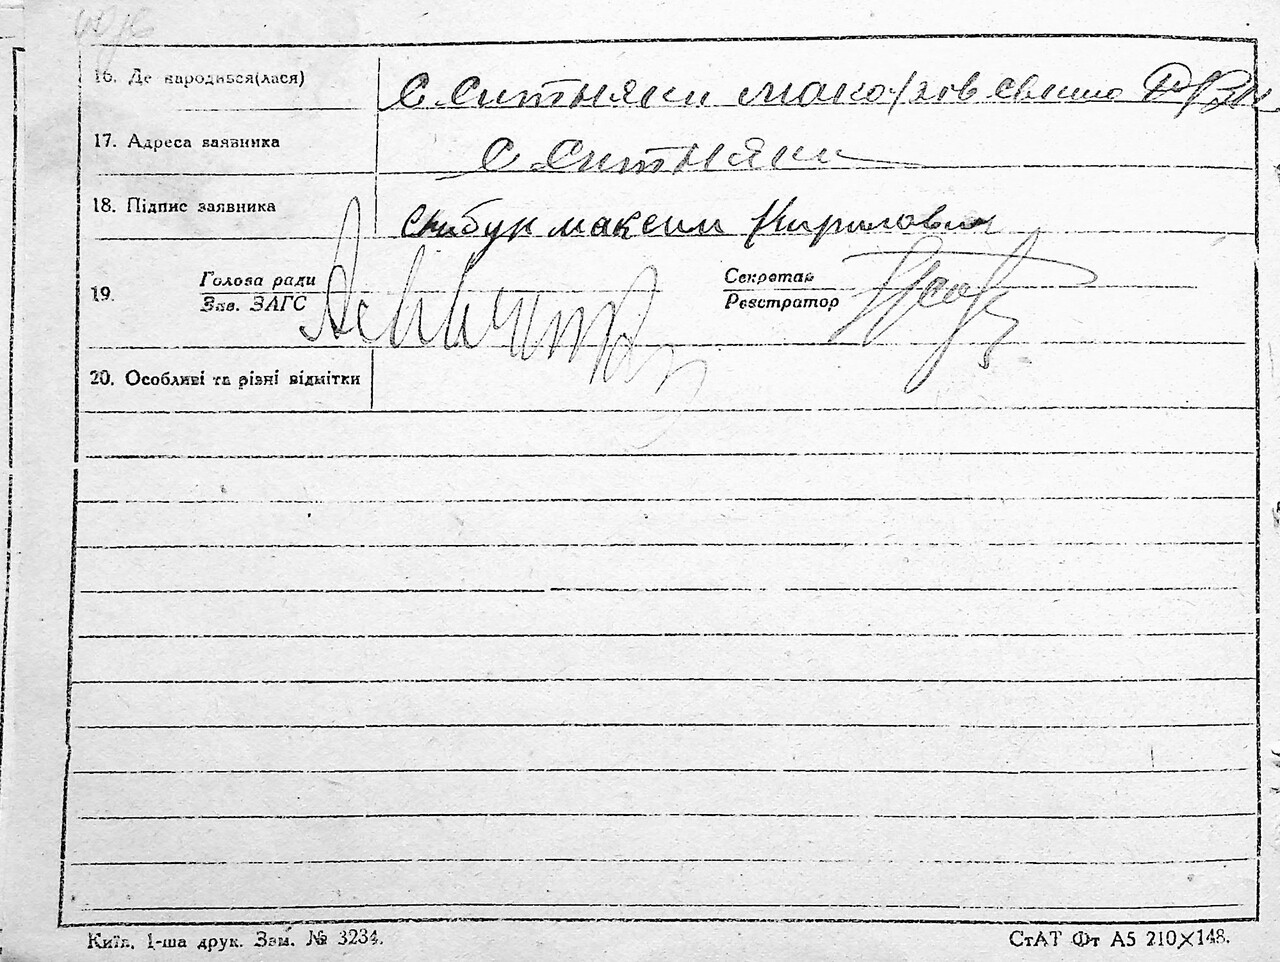 16. Де народився(лася) с Ситняки мака
17. Адреса заявника с Ситняки
18. Підпис заявника максим Кирилович
19. Голова ради Секретар
Зав. ЗАГС Реєстратор
20. Особливі та різні відмітки
Київ. 1-ша друк. Зам. № 3234. СтАТ Фт А5 210×148.